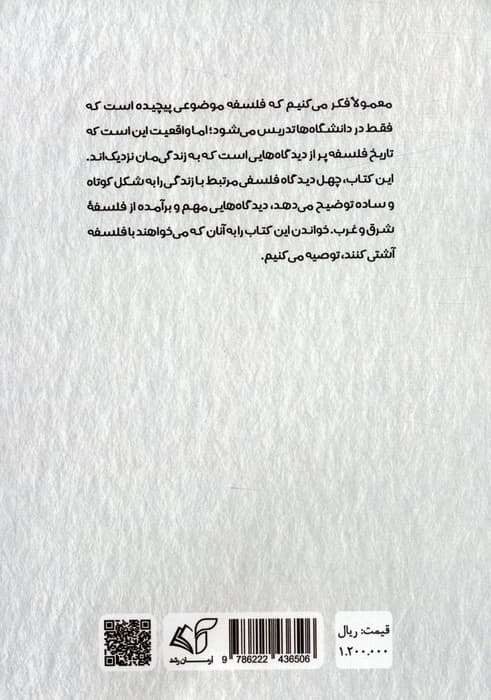 معمولاً فکر می‌کنیم که فلسفه موضوعی پیچیده است که
فقط در دانشگاه‌ها تدریس می‌شود؛ اما واقعیت این است که
تاریخ فلسفه پر از دیدگاه‌هایی است که به زندگی‌مان نزدیک‌اند.
این کتاب، چهل دیدگاه فلسفی مرتبط با زندگی را به شکل کوتاه
و ساده توضیح می‌دهد، دیدگاه‌هایی مهم و برآمده از فلسفهٔ
شرق و غرب. خواندن این کتاب را به آنان که می‌خواهند با فلسفه
آشتی کنند، توصیه می‌کنیم.
آرمان رشد
9 786222 436506
قیمت: ریال
۱.۲۰۰.۰۰۰